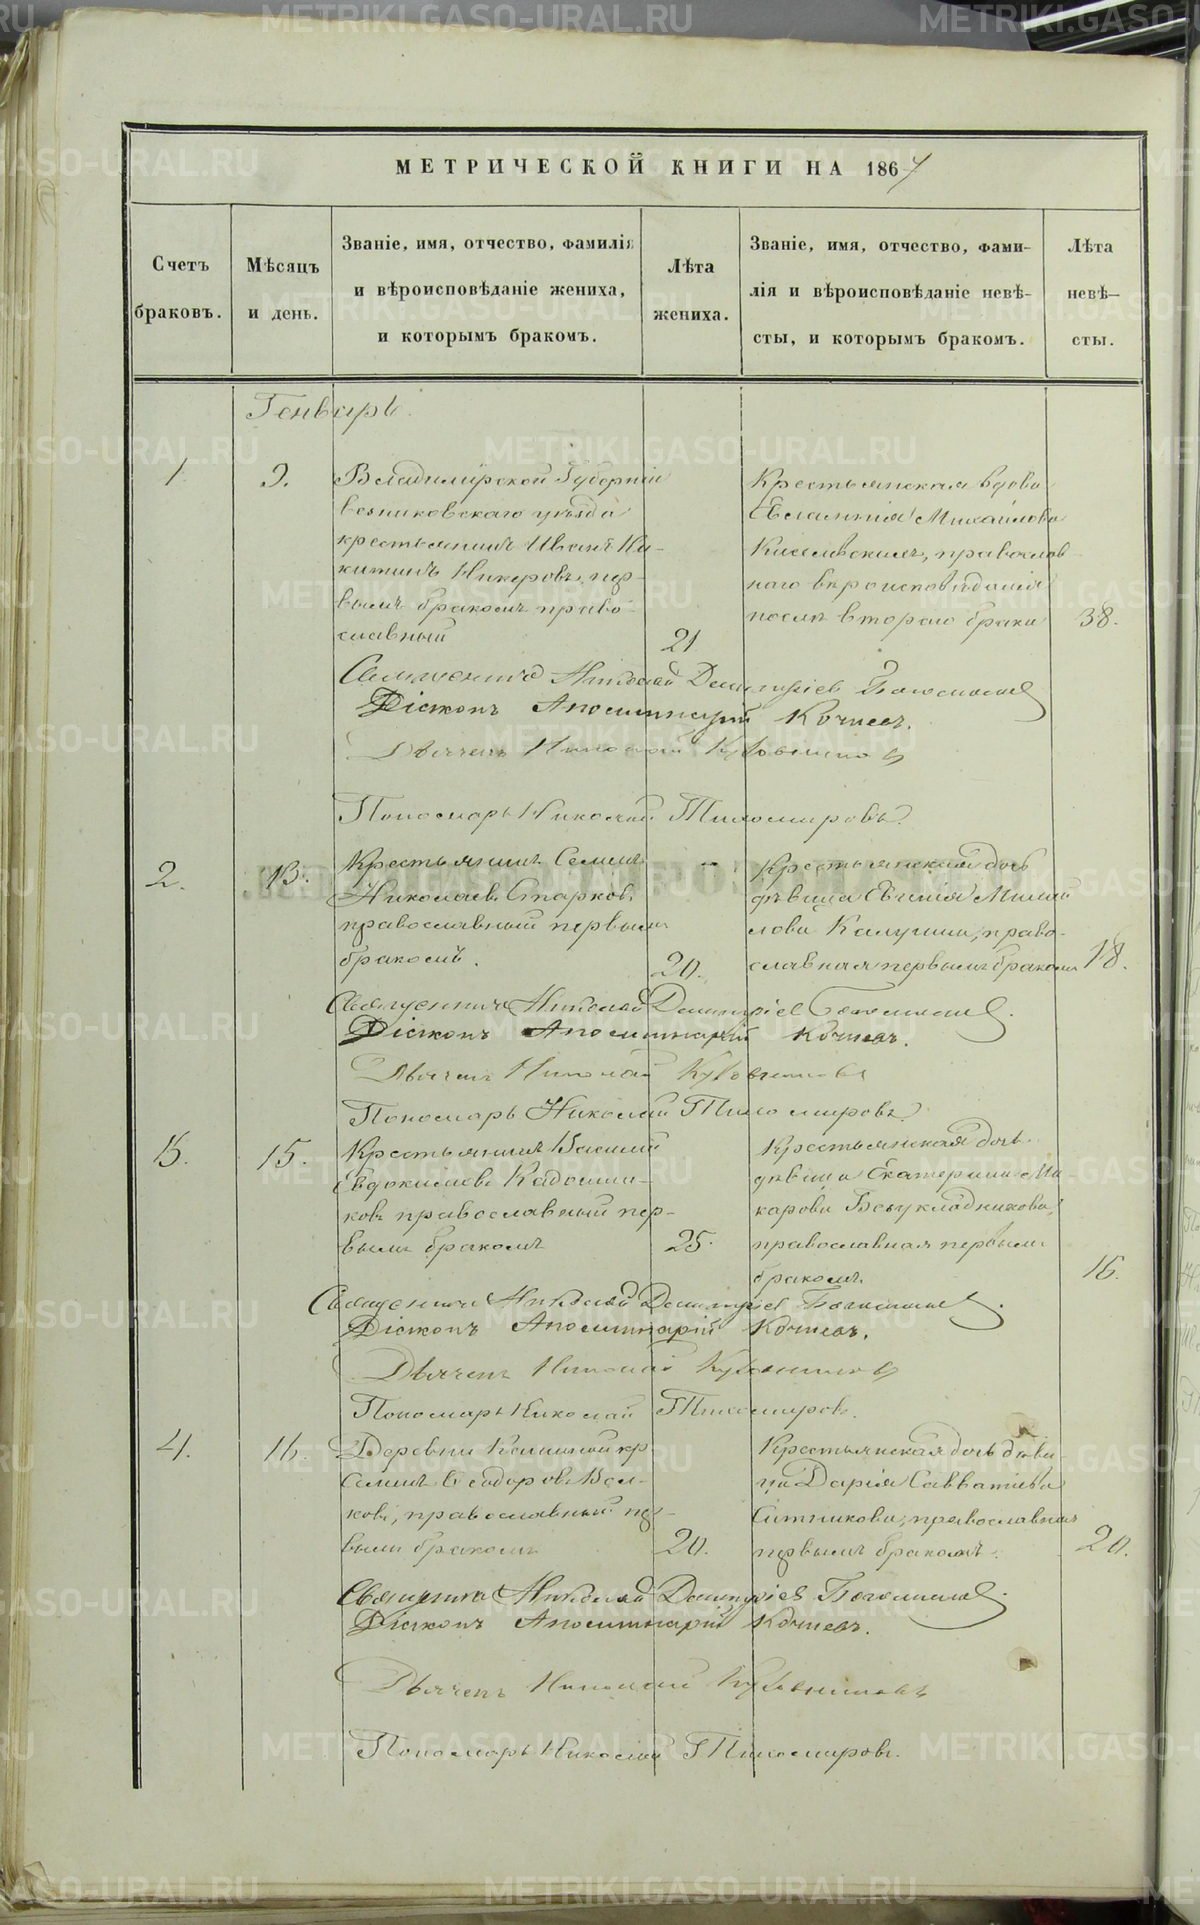 МЕТРИЧЕСКОЙ КНИГИ НА 1867
Счетъ браковъ.
Мѣсяцъ и день.
Званіе, имя, отчество, фамилія
и вѣроисповѣданіе жениха,
и которымъ бракомъ.
Лѣта жениха.
Званіе, имя, отчество, фами-
лія и вѣроисповѣданіе невѣ-
сты, и которымъ бракомъ.
Лѣта невѣ-
сты.
Генварь.
1
9.
Владимірской Губерніи
вязниковскаго уѣзда
крестьянинъ Иванъ Ни-
китинъ пер-
вымъ бракомъ право-
славный
21
Крестьянская вдова
Михайлова
православ-
наго вѣроисповѣданія
послѣ втораго брака
38.
Священникъ Николай Димитріев
Діаконъ Аполлинарій Кочневъ.
Дьячекъ Николай
Пономарь Николай Тихомировъ.
2.
13.
Крестьянинъ Семенъ
Николаевъ Старковъ,
православный первымъ
бракомъ.
20.
Крестьянская дочь
дѣвица Евгенія Михай
лова Калугина, право-
славная первымъ бракомъ
18.
Священникъ Николай Димитріев
Діаконъ Аполлинарій Кочневъ.
Дьячекъ Николай
Пономарь Николай Тихомировъ
3.
15.
Крестьянинъ Василій
Евдокимовъ
ковъ православный пер-
вымъ бракомъ
25.
Крестьянская дочь
дѣвица Екатерина Ма-
карова
православная первымъ
бракомъ.
16.
Священникъ Николай Димитріев
Діаконъ Аполлинарій Кочневъ.
Дьячекъ Николай
Пономарь Николай Тихомировъ.
4.
16.
Деревни кр
Семенъ Ѳеодоровъ Вол-
ковъ, православный пер-
вымъ бракомъ
20.
Крестьянская дочь дѣви-
ца Дарія Савватіева
Ситникова, православная
первымъ бракомъ.
20.
Священникъ Николай Димитріев
Діаконъ Аполлинарій Кочневъ.
Дьячекъ Николай
Пономарь Николай Тихомировъ.
METRIKI.GASO-URAL.RU